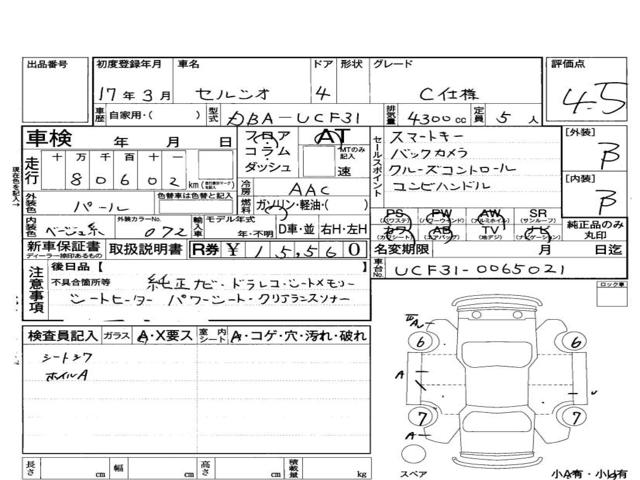 出品番号 初度登録年月 車名 ドア 形状 グレード 評価点
17年3月 セルシオ 4 C仕様 4.5
車歴 自家用・( ) 型式 DBA-UCF31 排気量 4300cc 定員 5人
車検 年 月 日 フロア コラム ダッシュ AT MTのみ記入 速
走行 十 万 千 百 十 一
80602 km
冷房 AAC
現在色を記入→
外装色 パール 色替車は色替と記入 燃料 ガソリン・軽油・( )
内装色 ベージュ系 外装カラーNo. 072 輸入車 モデル年式 年・不明 D車・並 右H・左H
セールスポイント
スマートキー
バックカメラ
クルーズコントロール
コンビハンドル
[外装] B
[内装] B
PS (パワステ) PW (パワーウインド) AW (アルミホイル) SR (サンルーフ)
カワ (カワシート) AB (エアバッグ) TV (地デジ) ナビ (ナビゲーション)
純正品のみ丸印
新車保証書 ディーラー捺印あるもの 取扱説明書 R券 ¥15,560 名変期限 月 日迄
車台No. UCF31-0065021
注意事項 後日品 [ ]
不具合箇所等 純正ナビ・ドラレコ・シートメモリー
シートヒーター パワーシート・クリアランスソナー
ロック車
検査員記入 ガラス A・X要ス 室内シート A・コゲ・穴・汚れ・破れ
シートシワ
ホイルA
A
6 6
A
7 7
A
長さ cm 幅 cm 高さ cm 積載量 kg
スペア 小A有・小U有